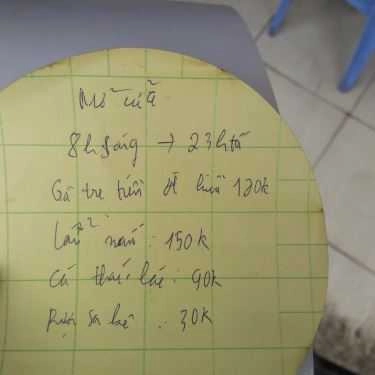 Mở cửa
8h sáng → 23h tối
Gà tre tiềm 120k
Lẩu nấm: 150k
Cá thác lác: 90k
Rượu Sa kê: 30k